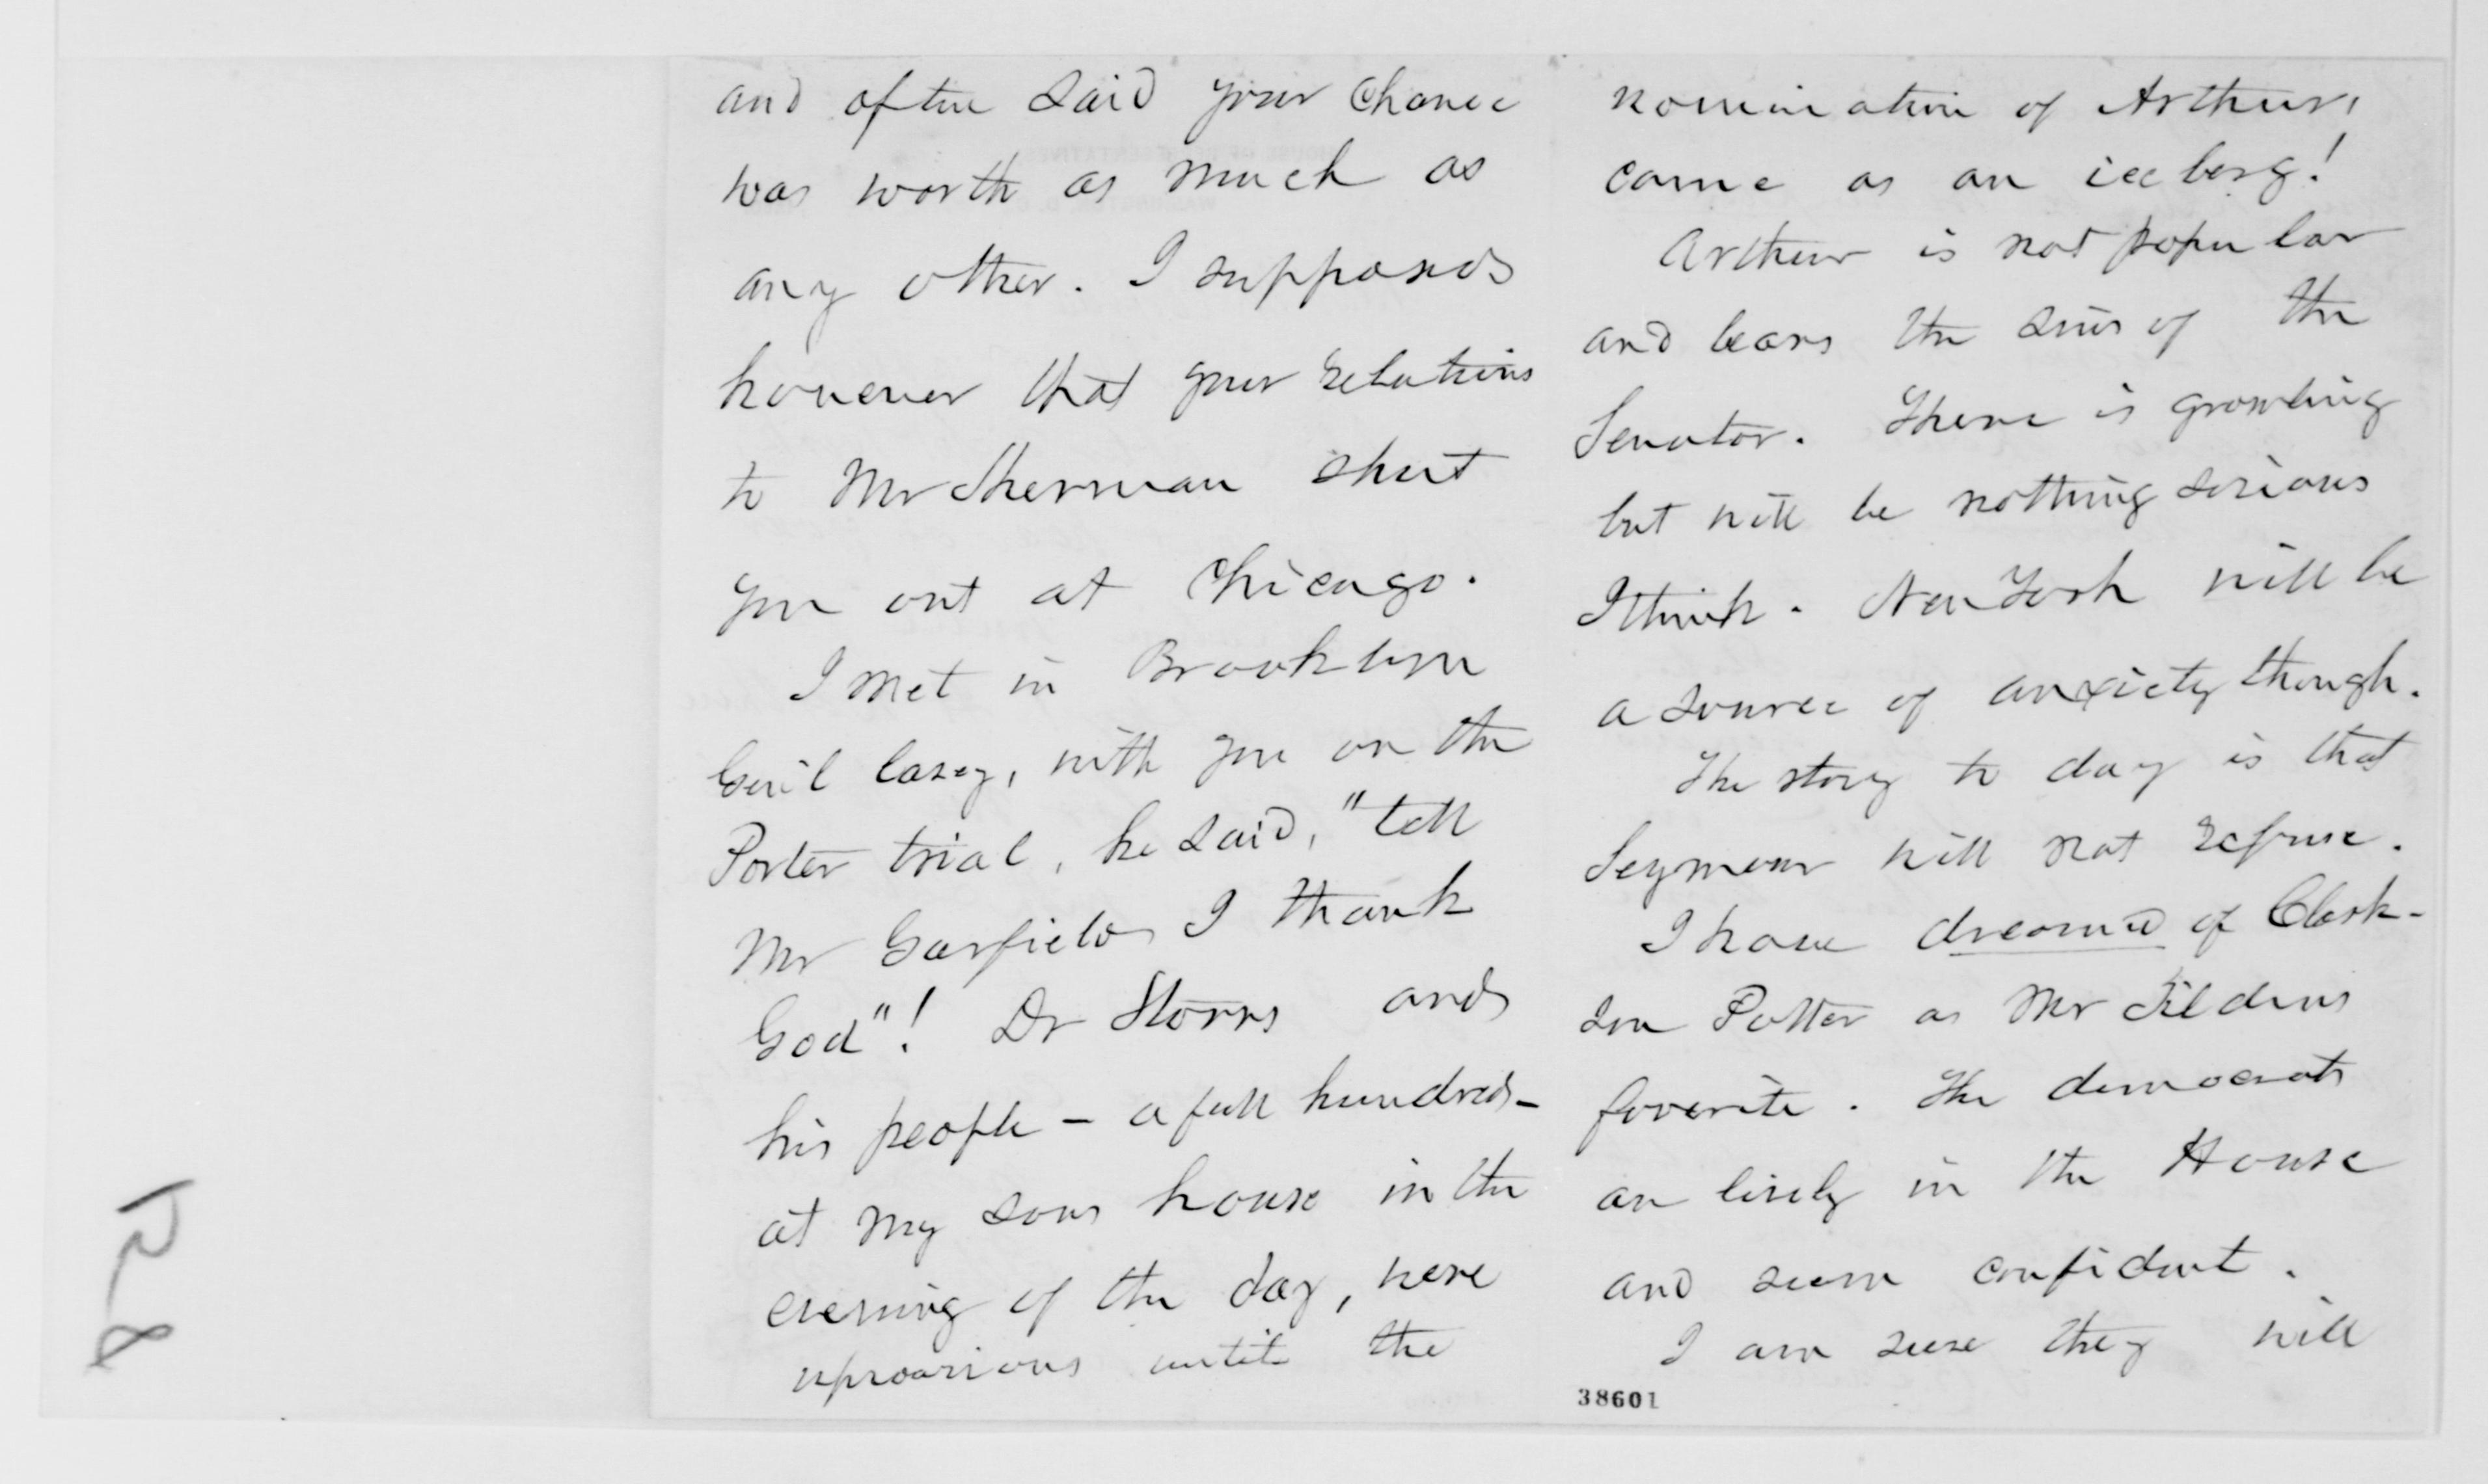 and often said your chance
was worth as much as
any other. I supposed
however that your relations
to Mr Sherman shut
you out at Chicago.
I met in Brooklyn
Gen'l Casey, with you on the
Porter trial, he said, "tell
Mr Garfield I thank
God"! Dr Storrs and
his people – a full hundred –
at my sons house in the
evening of the day, were
uproarious until the
nomination of Arthur,
came as an iceberg!
Arthur is not popular
and bears the sins of the
Senator. There is growling
but will be nothing serious
I think. New York will be
a source of anxiety though.
The story to day is that
Seymour will not refuse.
I have dreamed of Clark-
son Potter as Mr Tildens
favorite. The democrats
are lively in the House
and seem confident.
I am sure they will
38601
R-8